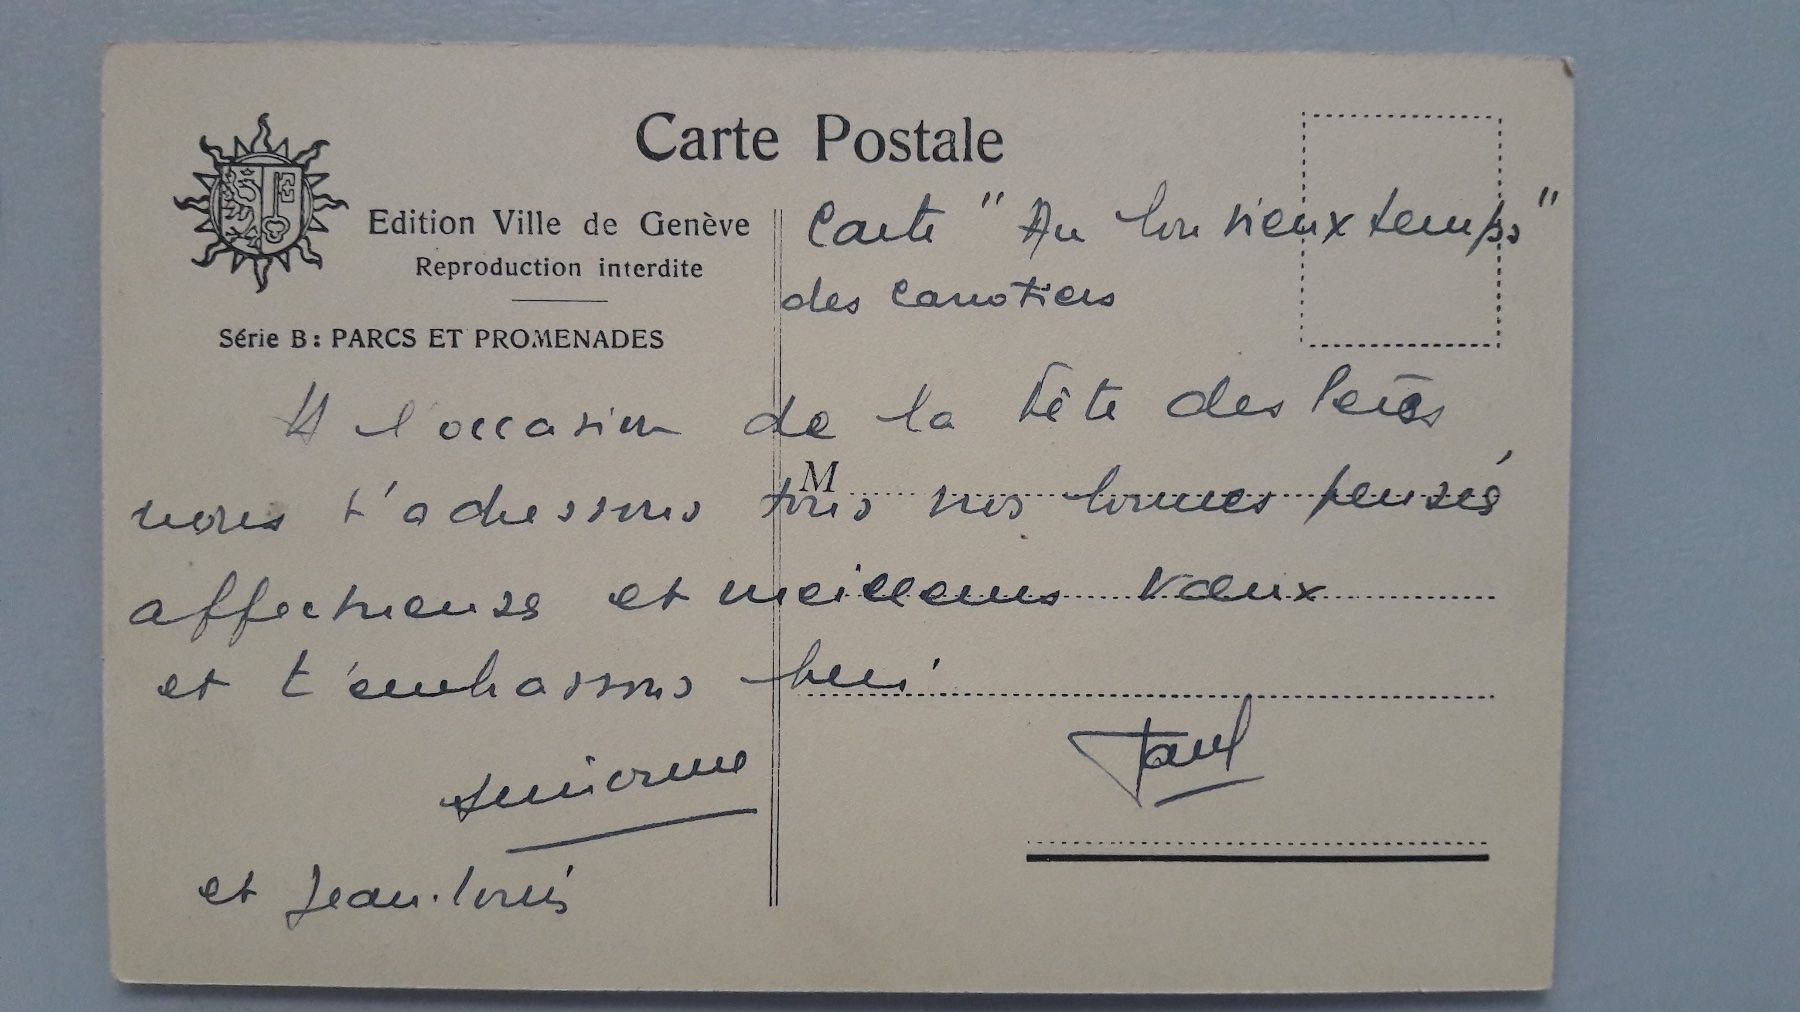 Carte Postale
Edition Ville de Genève
Reproduction interdite
Série B : PARCS ET PROMENADES
Carte "Au bon vieux temps"
des canotiers
A l'occasion de la Fête des Pères
M
nous t'adressons tous nos bonnes pensés
affectueuses et meilleurs vœux
et t'embrassons
Paul
et Jean-Louis